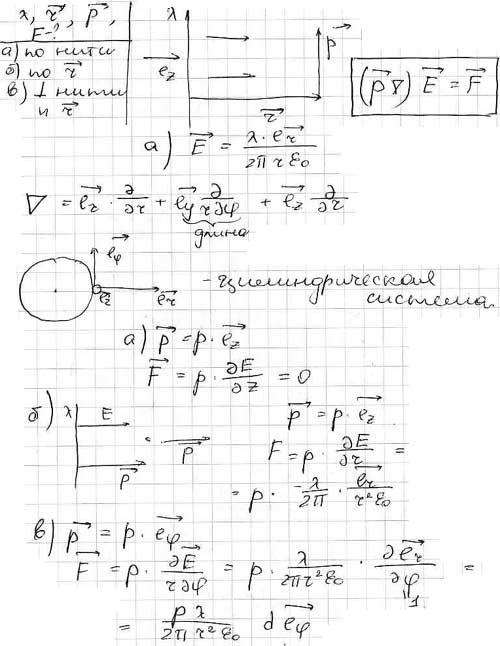 λ, r⃗, p⃗,
F-?
а) по нити
б) по r⃗
в) ⊥ нити
и r⃗
λ
e⃗z
p⃗
r⃗
(p⃗∇) E⃗ = F⃗
а) E⃗ = λ·e⃗r / 2πrε₀
∇ = e⃗r · ∂/∂r + e⃗y ∂/r∂φ + e⃗z ∂/∂r
длина
e⃗φ
e⃗z e⃗r
- цилиндрическая
система
а) p⃗ = p·e⃗z
F⃗ = p· ∂E⃗/∂z = 0
б) λ E
p⃗
p⃗
p⃗ = p·e⃗z
F = p· ∂E⃗/∂r =
= p · -λ/2π · e⃗r/r²ε₀
в) p⃗ = p·e⃗φ
F⃗ = p· ∂E⃗/r∂φ = p· λ/2πr²ε₀ · ∂e⃗r/∂φ =
1
= pλ/2πr²ε₀ de⃗φ